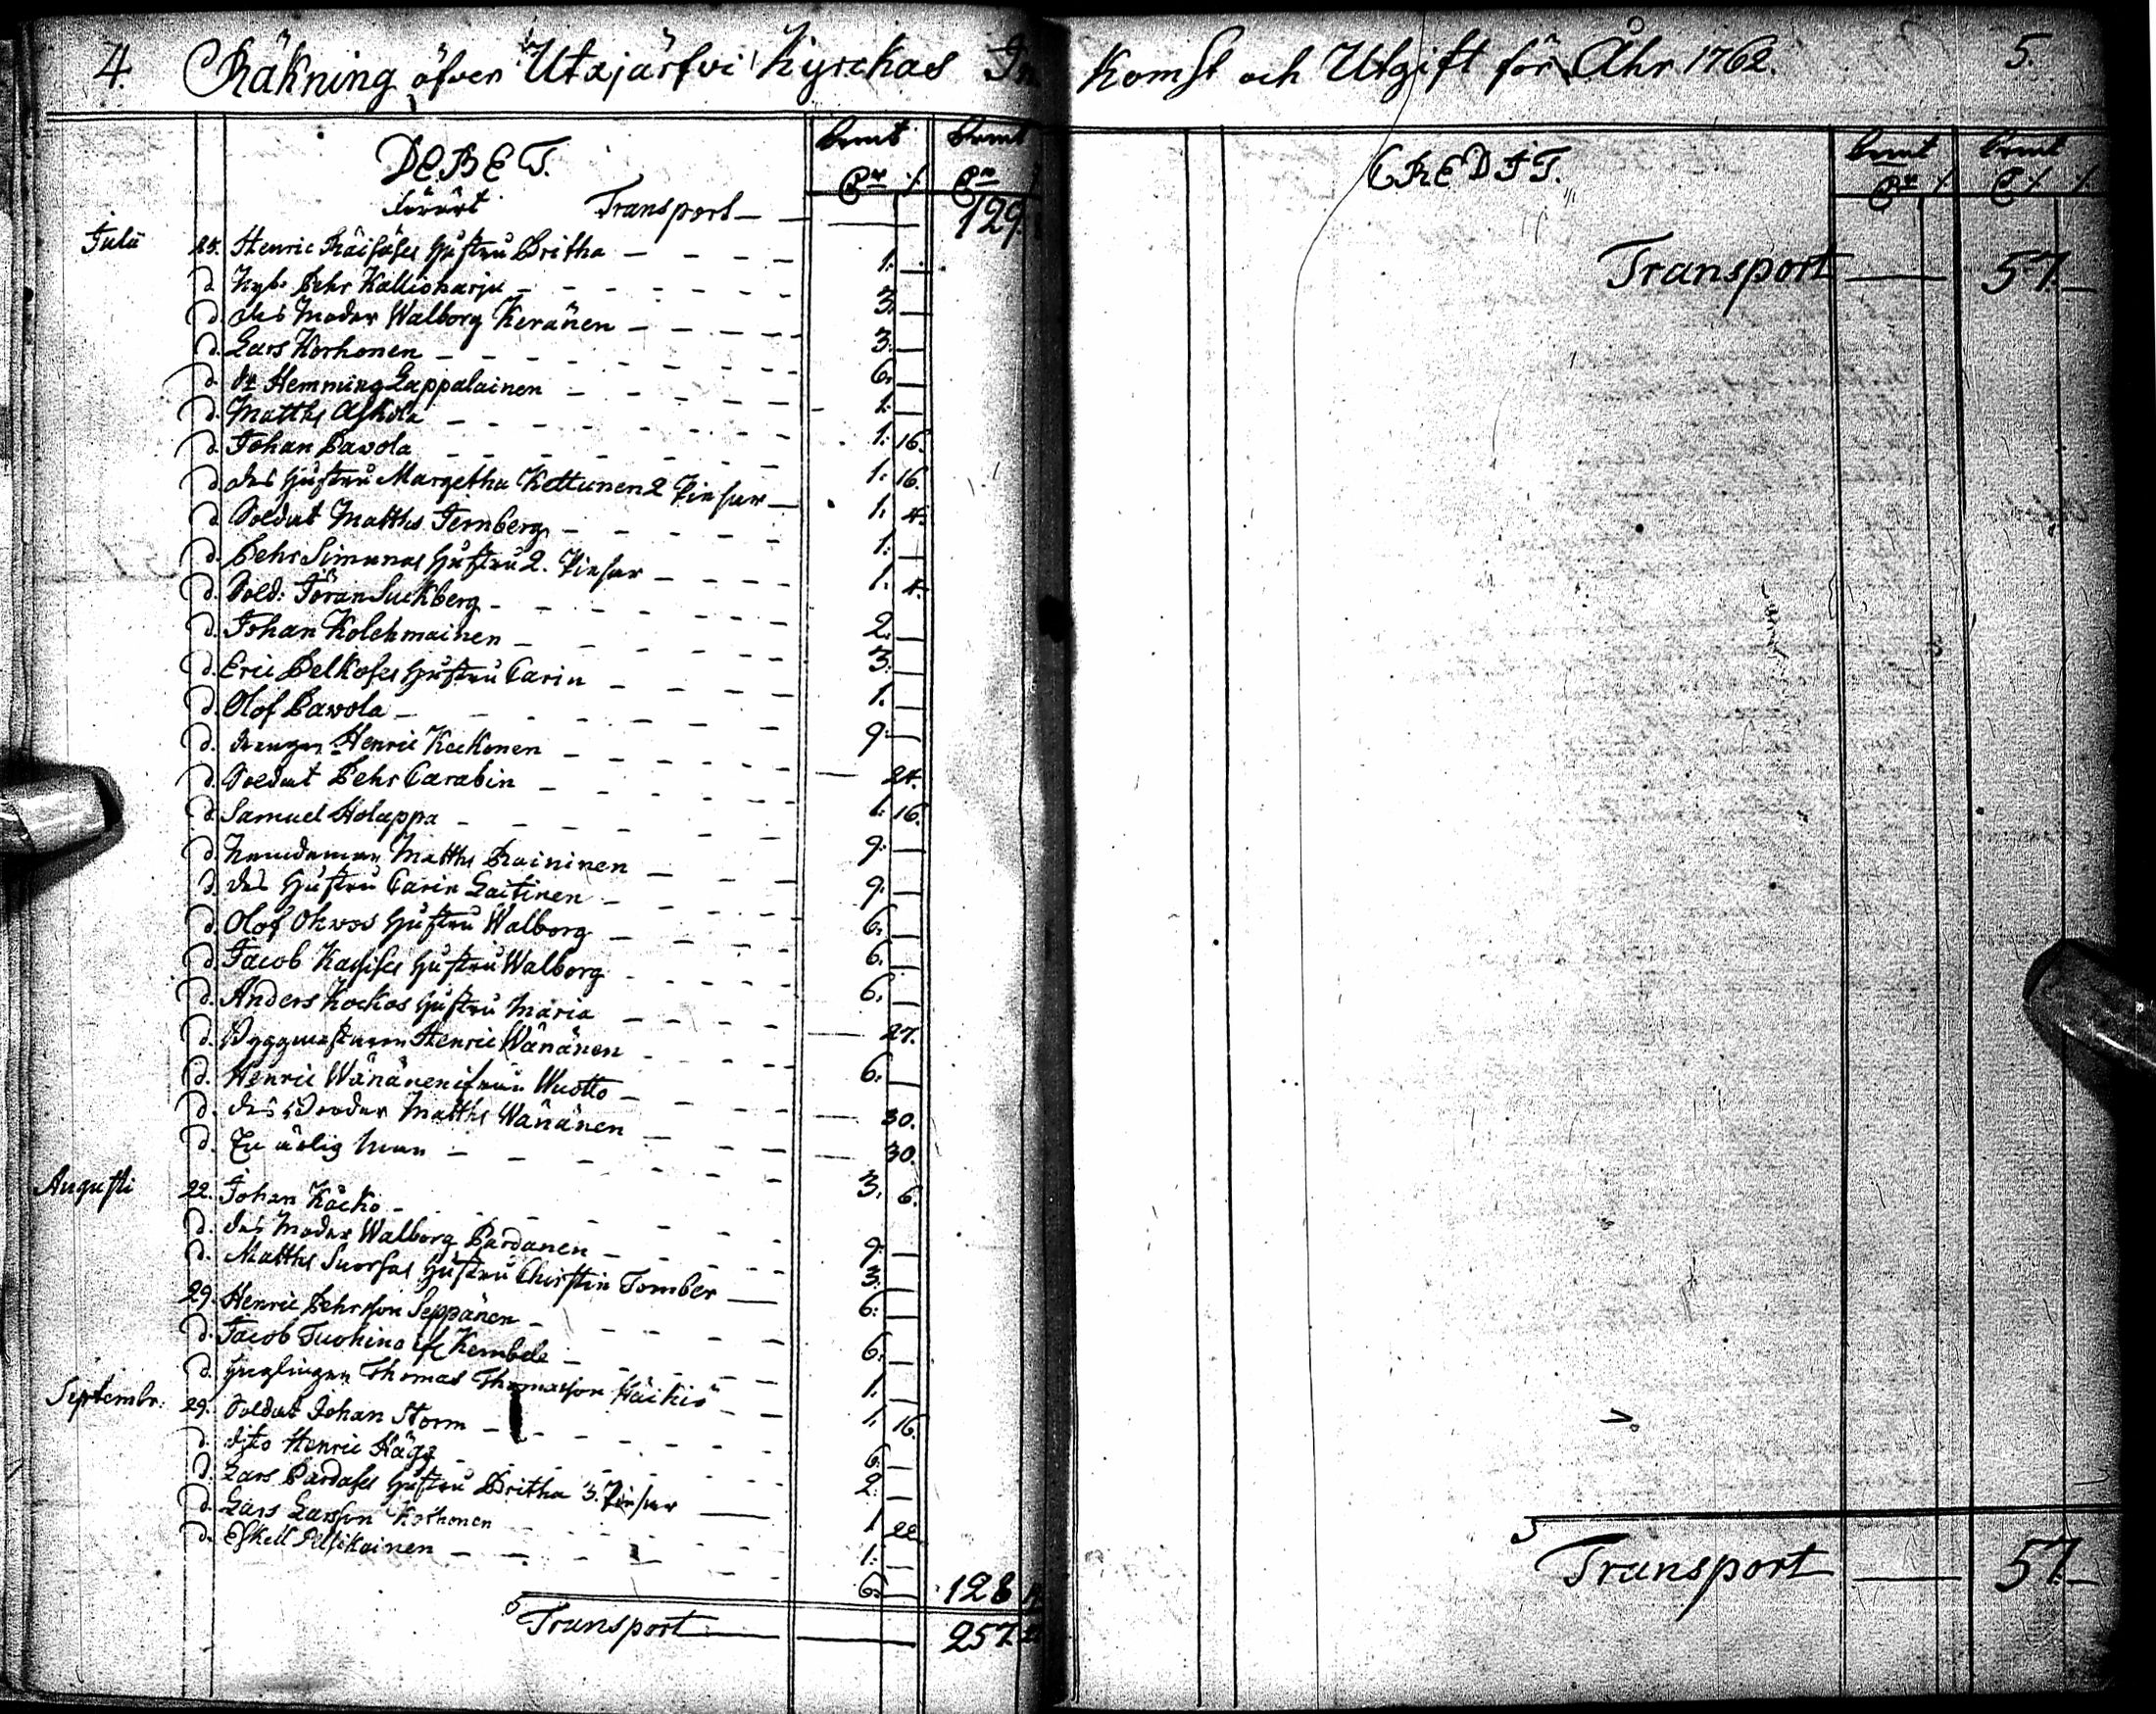 4. Räkning öfver Utajärfvi Kyrckas In Komst och Utgift för Åhr 1762. 5.
DEBET.
Transport — 129.
Julii 25. Henric Räisäses Hustru Britha — 1. —
d. Pehr Kallioharju — 3. —
d. des Moder Walborg Keränen — 3. —
d. Lars Korhonen — 6. —
d. Hemming Lappalainen — 1. —
d. Matths Askola — 1. 16.
d. Johan Pavola — 1. 16.
d. des Hustru Margetha Kettunen 2 — 1. 4.
d. Soldat Matths Jernberg — 1. —
d. Pehr Simunas Hustru 2. — 1. 4.
d. Sold: Jöran Suckberg — 2. —
d. Johan Kolehmainen — 3. —
d. Eric Pelkoses Hustru Carin — 1. —
d. Olof Pavola — 9. —
d. Henric Keckonen — 24.
d. Soldat Pehr Carabin — 1. 16.
d. Samuel Holappa — 9. —
d. Matths Raininen — 9. —
d. des Hustru Carin Laitinen — 6. —
d. Olof Ohvos Hustru Walborg — 6. —
d. Jacob Hustru Walborg — 6. —
d. Anders Kockos Hustru Maria — 27.
d. Byggmästaren Henric Wänänen — 6. —
d. Henric Wänänen ifrån Wuotto — 30.
d. des Broder Matths Wänänen — 30.
d. En ärlig Man — 3. 6.
Augusti 22. Johan Käcko — 9. —
d. des Moder Walborg Pardanen — 3. —
d. Matths Suorsas Hustru Christin Tomber — 6. —
29. Henric Pehrsson Seppänen — 6. —
d. Jacob Tuohino if Kembele — 1. —
d. Thomas Thomasson — 1. 16.
Septembr. 29. Soldat Johan Storm — 6. —
d. dito Henric Hägg — 2. —
d. Lars Pardases Hustru Britha 3. — 1. 22.
d. Lars Larsson Korhonen — 1. —
d. Eskell — 6. — 128
Transport — 257
CREDIT.
Transport — 57. —
Transport — 57. —